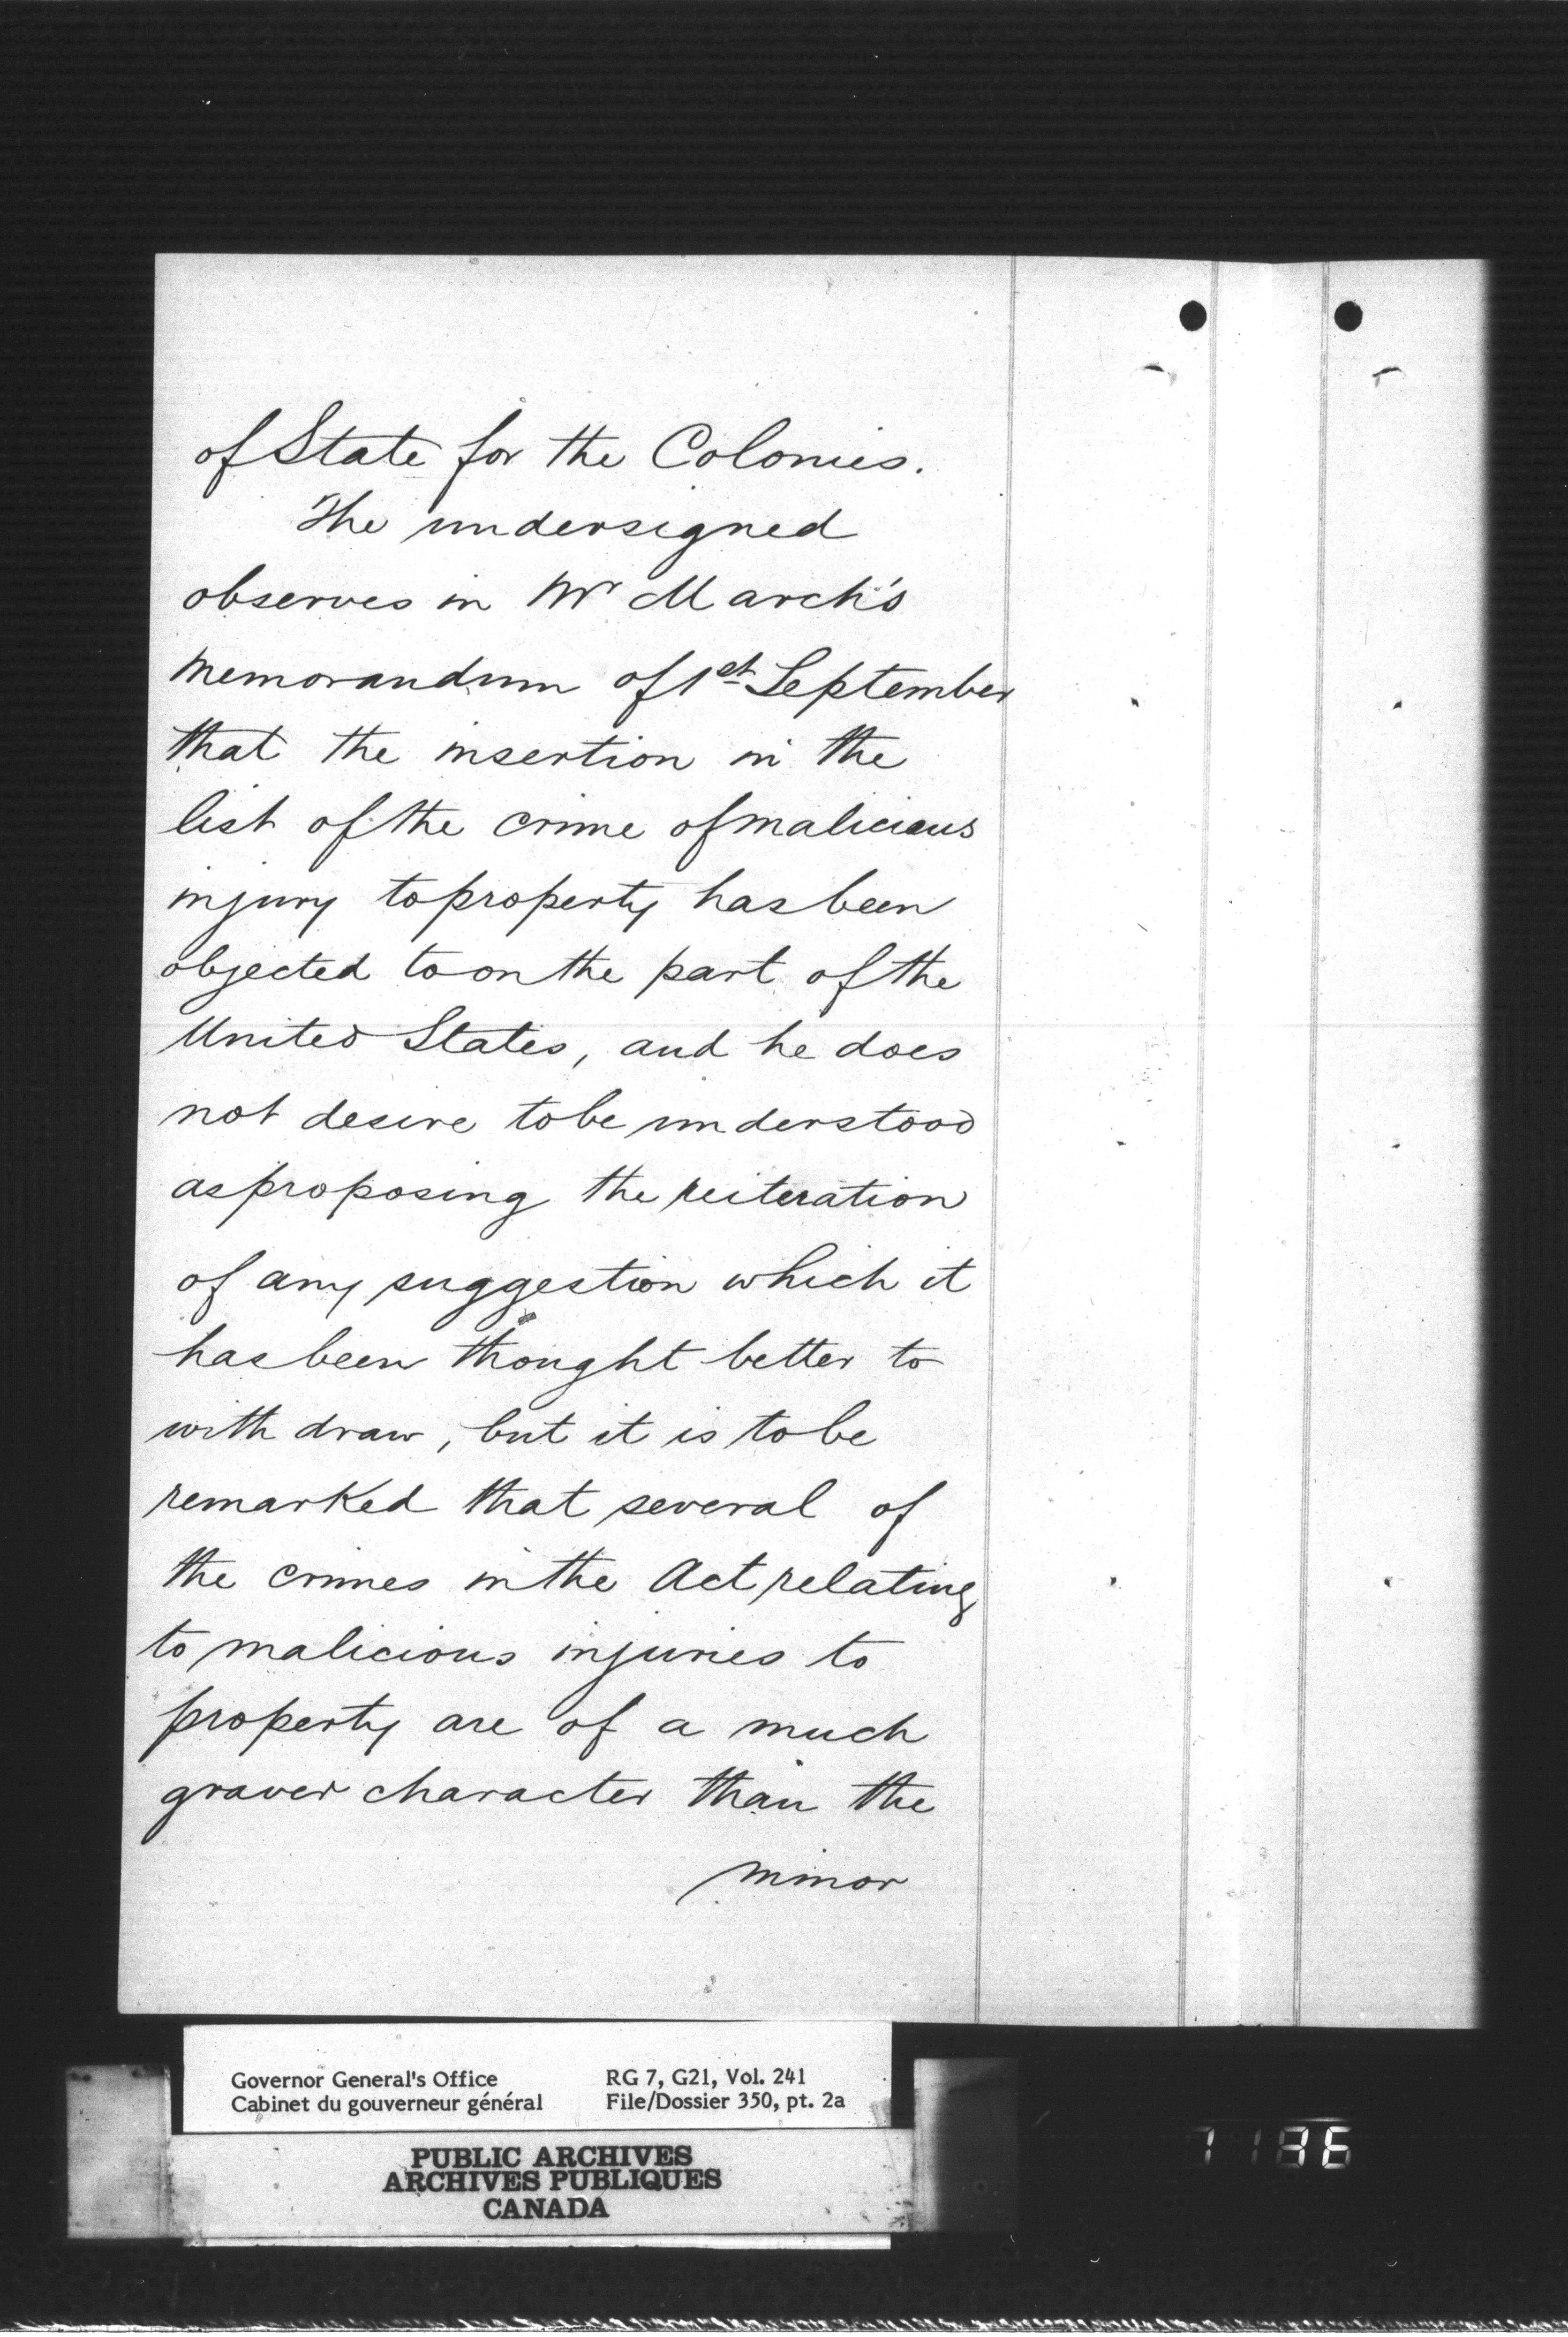 of State for the Colonies.
The undersigned
observes in Mr March's
memorandum of 1st September
that the insertion in the
list of the crime of malicious
injury to property has been
objected to on the part of the
United States, and he does
not desire to be understood
as proposing the reiteration
of any suggestion which it
has been thought better to
with draw, but it is to be
remarked that several of
the crimes in the Act relating
to malicious injuries to
property are of a much
graver character than the
minor
Governor General's Office RG 7, G21, Vol. 241
Cabinet du gouverneur général File/Dossier 350, pt. 2a
PUBLIC ARCHIVES
ARCHIVES PUBLIQUES
CANADA